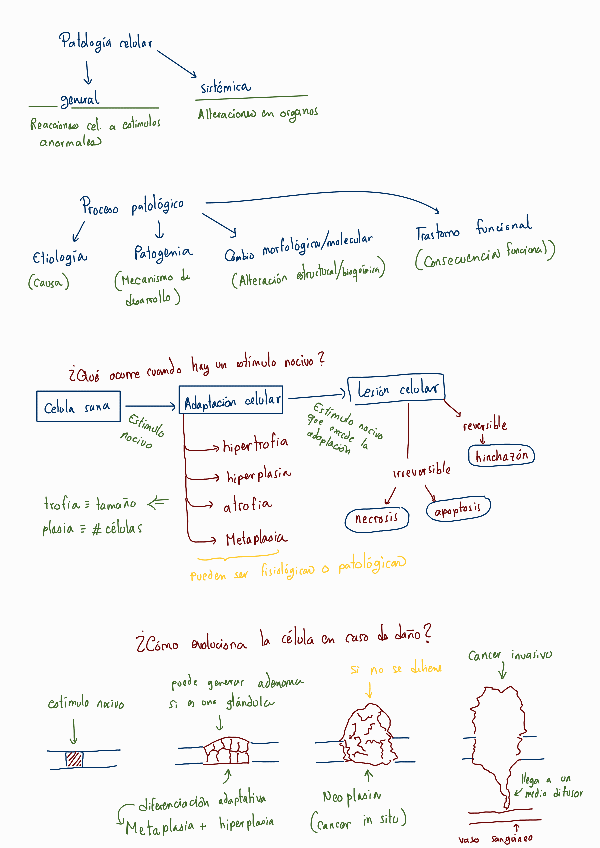 Patología celular
general
sistémica
Reacciones cel. a estímulos
anormales
Alteraciones en organos
Proceso patológico
Etiología
(causa)
Patogenia
(Mecanismo de
desarrollo)
Cambio morfológico/molecular
(Alteración estructural/bioquímica)
Trastorno funcional
(Consecuencia funcional)
¿Qué ocurre cuando hay un estímulo nocivo?
Célula sana
Estímulo
nocivo
Adaptación celular
Estímulo nocivo
que excede la
adaptación
Lesión celular
hipertrofia
hiperplasia
atrofia
Metaplasia
trofia ≡ tamaño
plasia ≡ # células
pueden ser fisiológicas o patológicas
reversible
hinchazón
irreversible
necrosis
apoptosis
¿Cómo evoluciona la célula en caso de daño?
estímulo nocivo
puede generar adenoma
si es una glándula
diferenciación adaptativa
Metaplasia + hiperplasia
si no se detiene
Neoplasia
(cancer in situ)
Cancer invasivo
llega a un
medio difusor
vaso sanguíneo